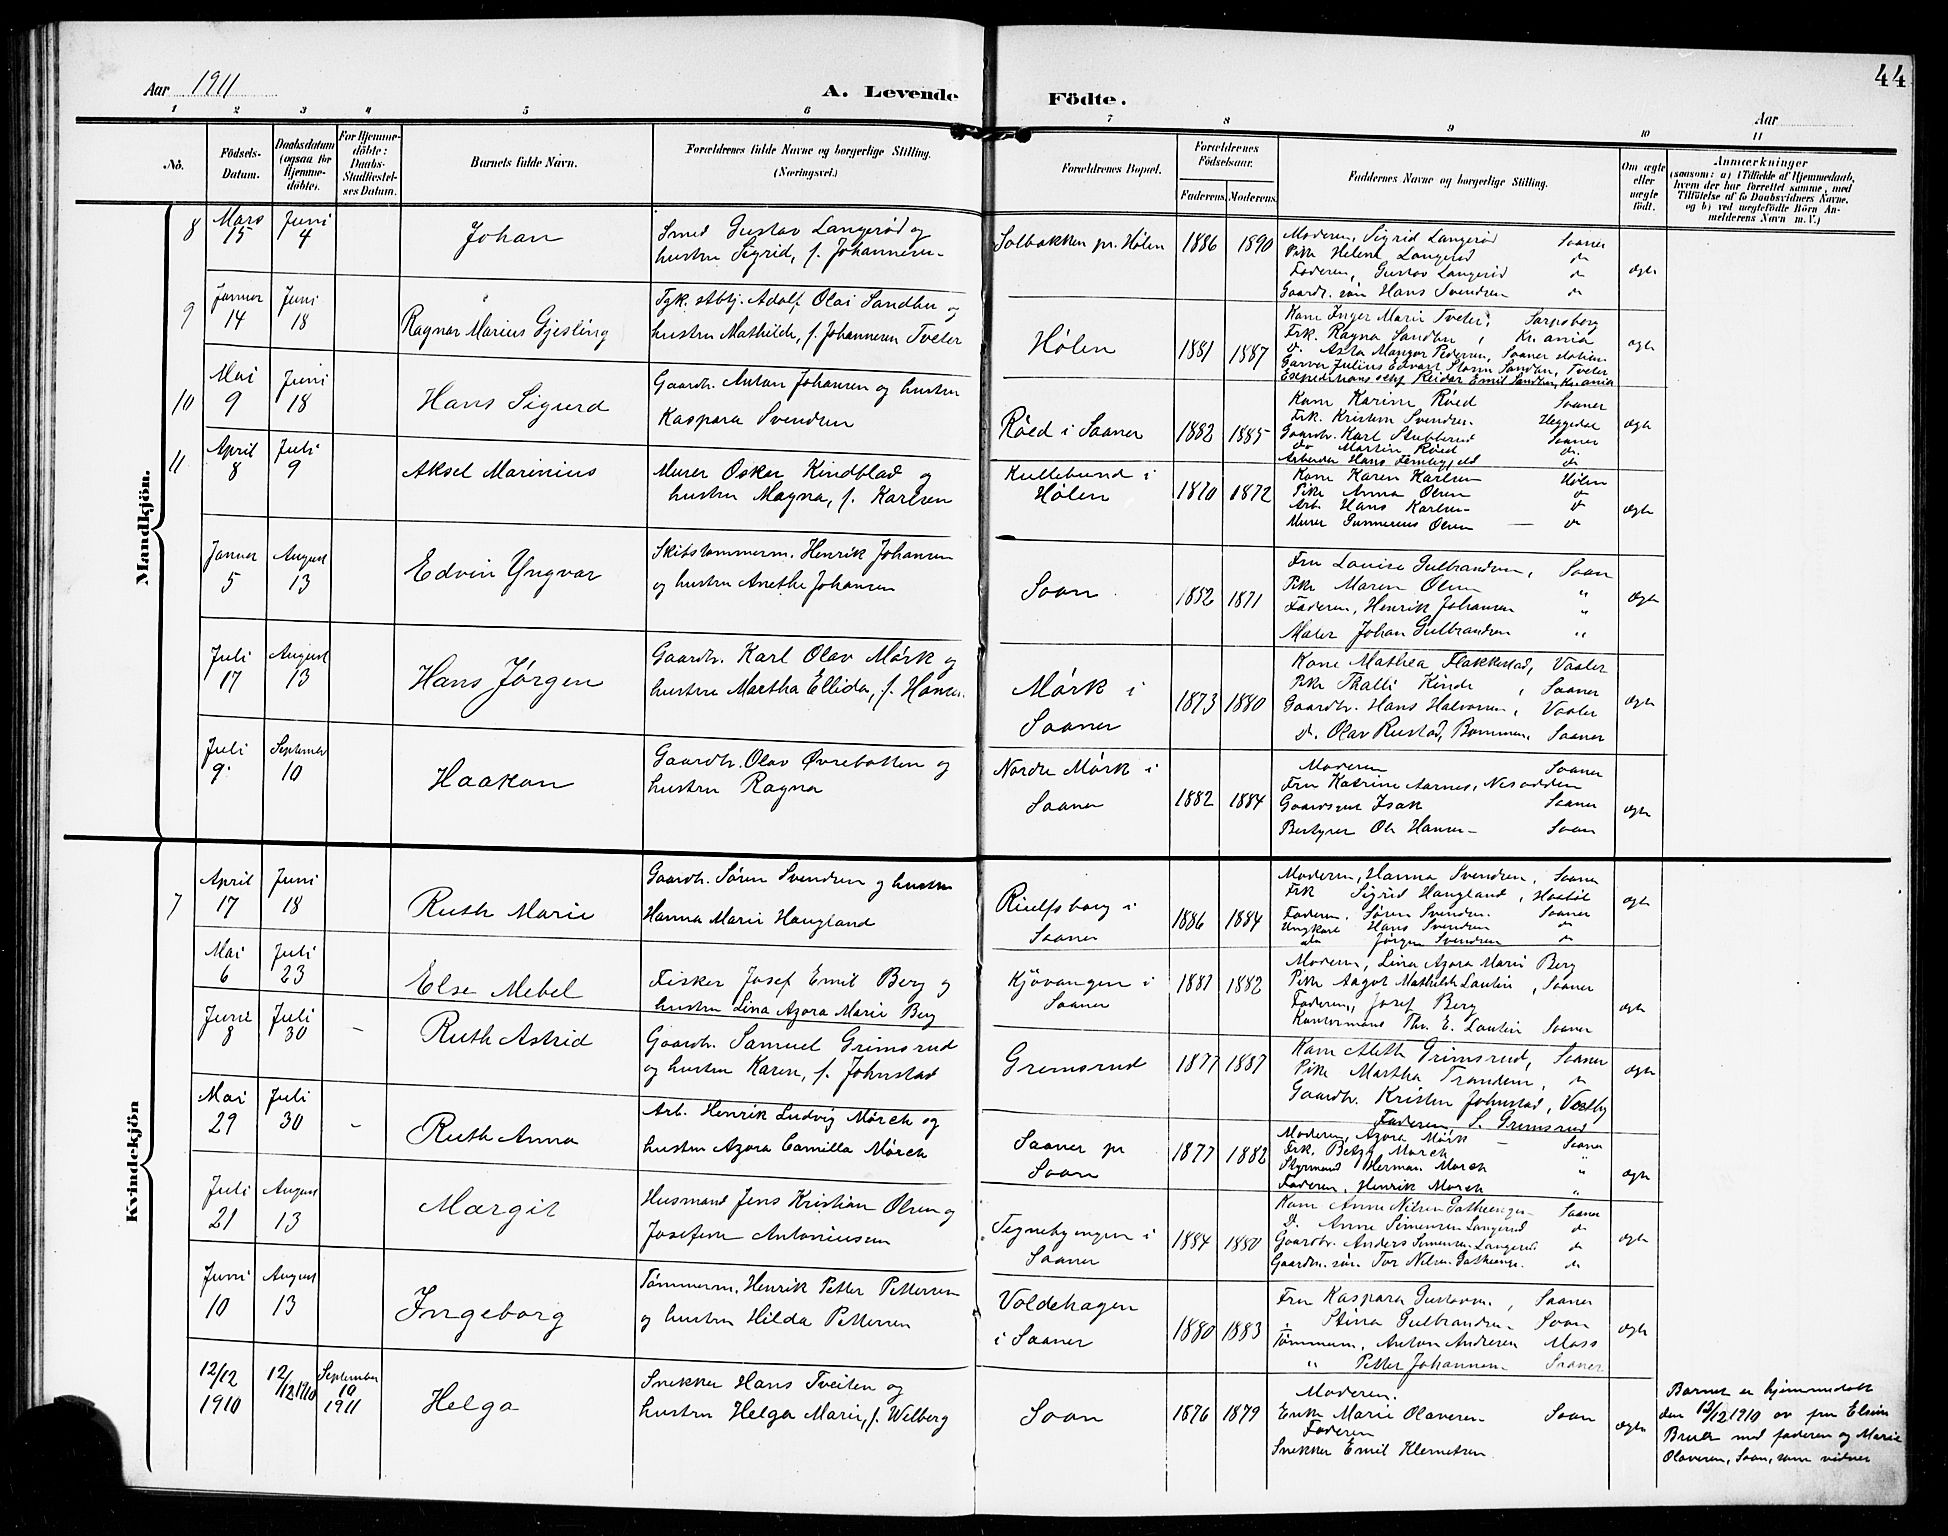 44
Aar 1911
A. Levende Födte.
Aar
1 2 3 4 5 6 7 8 9 10 11
No.
Födsels-
Datum.
Daabsdatum
(ogsaa for
Hjemme-
döbte).
For Hjemme-
döbte:
Daabs-
Stadfæstel-
ses Datum.
Barnets fulde Navn.
Forældrenes fulde Navne og borgerlige Stilling.
(Næringsvei.)
Forældrenes Bopæl.
Forældrenes
Födselsaar.
Faderens. Moderens.
Faddernes Navne og borgerlige Stilling.
Om ægte
eller
uægte
födt.
Anmærkninger
(saasom: a) i Tilfælde af Hjemmedaab,
hvem der har forrettet samme, med
Tilföielse af to Daabsvidners Navne,
og b) ved uægtefödte Börn An-
melderens Navn m. V.)
Mandkjön.
8 Mars 15 Juni 4 Johan
Smed Gustav Langerød og
hustru Sigrid, f. Johannesen
Solbakken pr. Hølen 1886 1890
Moderen, Sigrid Langerød Saaner
Pike Helene Langerød do
Faderen, Gustav Langerød do
Gaardbr. søn Hans Svendsen do
ægte
9 Januar 14 Juni 18 Ragnar Marius Gjesling
Adolf Olai Sandbu og
hustru Mathilde, f. Johannesen Tveter
Hølen 1881 1887
Kone Inger Marie Tveter, Sarpsborg
Frk. Ragna Sandbu, Kr.ania
D. Asta Mangor Pedersen, Saaner station
Garver Julius Edvart Storm Sandbu, Tveter
Reidar Emil Sandbu, Kr.ania
ægte
10 Mai 9 Juni 18 Hans Sigurd
Gaardbr. Anton Johansen og hustru
Kaspara Svendsen
Røed i Saaner 1882 1885
Kone Karine Røed Saaner
Frk. Kristine Svendsen Heggedal
Gaardbr. Karl Stubberud Saaner
do Martin Røed do
Arbeider Hans do
ægte
11 April 8 Juli 9 Aksel Marinius
Murer Oskar Kindblad og
hustru Magna, f. Karlsen
i
Hølen 1870 1872
Kone Karen Karlsen Hølen
Pike Anna Olsen do
Arb. Hans Karlsen do
Murer Gunnerius Olsen — do
ægte
Januar 5 August 13 Edvin Yngvar
Skibstømmerm. Henrik Johansen
og hustru Anethe Johansen
Soon 1852 1871
Fru Louise Gulbrandsen, Soon
Pike Maren Olsen "
Faderen, Henrik Johansen "
Maler Johan Gulbrandsen "
ægte
Juli 17 August 13 Hans Jørgen
Gaardbr. Karl Olav Mørk og
hustru Martha Ellida, f. Hansen
Mørk i
Saaner 1873 1880
Kone Mathea Flakkestad, Vaaler
Pike Thalli Kinde, Saaner
Gaardbr. Hans Halvorsen, Vaaler
D. Olav Rustad, Saaner
ægte
Juli 9 September 10 Haakon
Gaardbr. Olav Øvrebotten og
hustru Ragna
Nordre Mørk i
Saaner 1882 1884
Moderen Saaner
Fru Katrine Aarnes, Nesodden
Isak Saaner
Bestyrer Ole Hansen Soon
ægte
Kvindekjön
7 April 17 Juni 18 Ruth Marie
Gaardbr. Søren Svendsen og hustru
Hanna Marie Haugland
Riulfsborg i
Saaner 1886 1884
Moderen, Hanna Svendsen, Saaner
Frk Sigrid Haugland, Hobøl
Faderen, Søren Svendsen Saaner
Ungkarl Hans Svendsen do
do Jørgen Svendsen do
ægte
Mai 6 Juli 23 Else Mebel
Fisker Josef Emil Berg og
hustru Lina Azora Marie Berg
Kjøvangen i
Saaner 1881 1882
Moderen, Lina Azora Marie Berg
Pike Aagot Mathilde Lautin, Saaner
Faderen, Josef Berg
Kontormand Thv. E. Lautin Saaner
ægte
Juni 8 Juli 30 — Ruth Astrid
Gaardbr. Samuel Grimsrud
og hustru Karen, f. Johnstad
Grimsrud 1877 1887
Kone Aleth Grimsrud, Saaner
Pike Martha Trondsen, do
Gaardbr. Kristen Johnstad, Vestby
Faderen S. Grimsrud
ægte
Mai 29 Juli 30 — Ruth Anna
Arb. Henrik Ludvig Mørch og
hustru Azora Camilla Mørch
Saaner pr
Soon 1877 1882
Moderen, Azora Mørk — Saaner
Frk. Betzy Mørch "
Styrmand Herman Mørch "
Faderen, Henrik Mørch "
ægte
Juli 21 August 13 Margit
Husmand Jens Kristian Olsen og
Josefine Antoniusen
Tegnebyengen i
Saaner 1884 1880
Kone Anne Nilsen Saaner
D. Anne Simensen Langerud do
Gaardbr. Anders Simensen Langerud do
Gaardm. søn Tor Nilsen do
ægte
Juni 10 August 13 Ingeborg
Tømmerm. Henrik Petter Pettersen
og hustru Hilda Pettersen
Voldehagen
i Saaner 1880 1883
Fru Kaspara Gustavsen, Saaner
" Stina Gulbrandsen Soon
Tømmerm. Anton Andersen Moss
" Petter Johannesen Saaner
ægte
12/12 1910 12/12 1910 September 10 1911 Helga
Snekker Hans Tveiten og
hustru Helga Marie, f. Welberg
Soon 1876 1879
Moderen.
Enke Marie Olavesen Soon
Faderen
Snekker Emil Klemetsen
ægte
Barnet er hjemmedøbt
den 12/12 1910 av fru Elsine
Bruer med faderen og Marie
Olavesen, Soon, som vidner